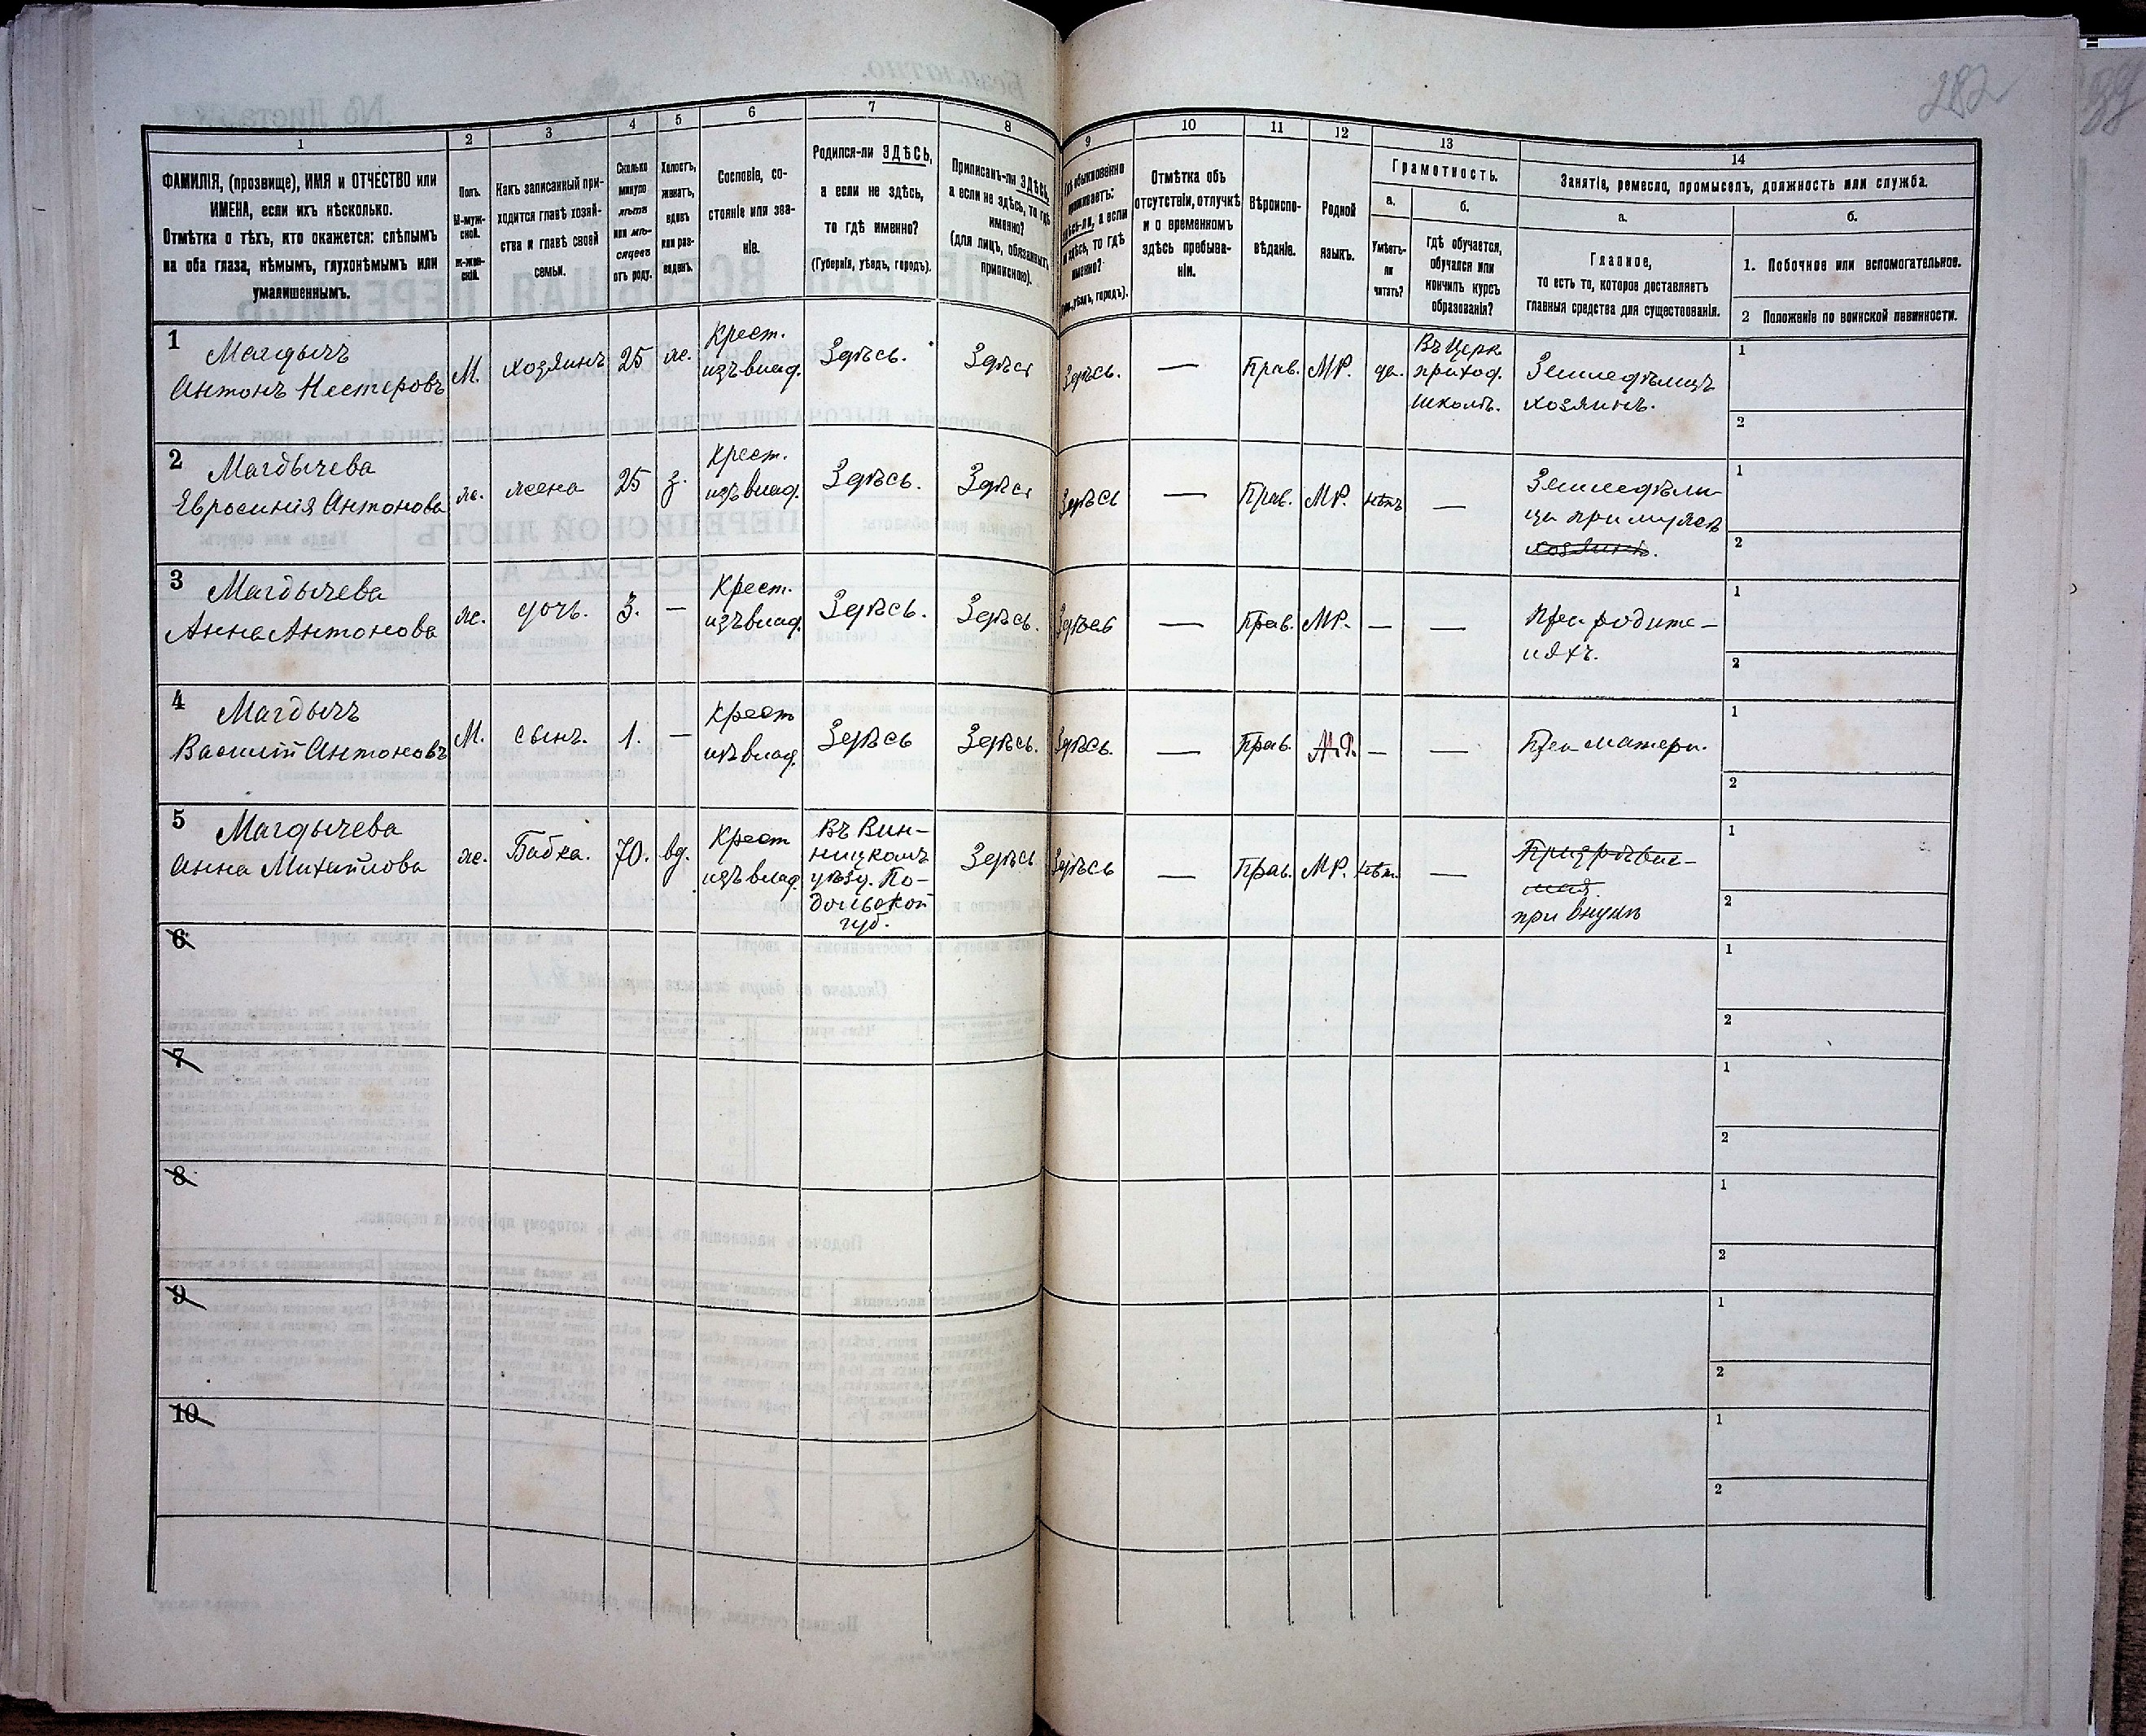 282
1
2
3
4
5
6
7
8
9
10
11
12
13
14
ФАМИЛІЯ, (прозвище), ИМЯ и ОТЧЕСТВО или
ИМЕНА, если ихъ нѣсколько.
Отмѣтка о тѣхъ, кто окажется: слѣпымъ
на оба глаза, нѣмымъ, глухонѣмымъ или
умалишеннымъ.
Полъ.
М-муж-
ской.
ж-жен-
скій.
Какъ записанный при-
ходится главѣ хозяй-
ства и главѣ своей
семьи.
Сколько
минуло
лѣтъ
или мѣ-
сяцевъ
отъ роду.
Холостъ,
женатъ,
вдовъ
или раз-
веденъ.
Сословіе, со-
стояніе или зва-
ніе.
Родился-ли ЗДѢСЬ,
а если не здѣсь,
то гдѣ именно?
(Губернія, уѣздъ, городъ).
Приписанъ-ли ЗДѢСЬ,
а если не здѣсь, то гдѣ
именно?
(для лицъ, обязанныхъ
припискою).
обыкновенно
проживаетъ:
здѣсь-ли, а если
не здѣсь, то гдѣ
именно?
уѣздъ, городъ).
Отмѣтка объ
отсутствіи, отлучкѣ
и о временномъ
здѣсь пребыва-
ніи.
Вѣроиспо-
вѣданіе.
Родной
языкъ.
Грамотность.
а.
б.
Умѣетъ-
ли
читать?
Гдѣ обучается,
обучался или
кончилъ курсъ
образованія?
Занятіе, ремесло, промыселъ, должность или служба.
а.
б.
Главное,
то есть то, которое доставляетъ
главныя средства для существованія.
1. Побочное или вспомогательное.
2 Положеніе по воинской повинности.
1
Магдычъ
Антонъ Нестеровъ
М.
хозяинъ
25
ж.
Крест.
изъ влад.
Здѣсь.
Здѣсь
Здѣсь.
—
Прав.
МР.
да.
Въ Церк.
приход.
школѣ.
Земледѣлецъ
хозяинъ.
1
2
2
Магдычева
Евросинія Антонова
ж.
жена
25
з.
Крест.
изъ влад.
Здѣсь.
Здѣсь
Здѣсь
—
Прав.
МР.
нѣтъ
—
Земледѣли-
ца при мужѣ
хозяинъ.
1
2
3
Магдычева
Анна Антонова
ж.
дочь.
3.
—
Крест.
изъ влад.
Здѣсь.
Здѣсь.
Здѣсь
—
Прав.
МР.
—
—
При родите-
ляхъ.
1
2
4
Магдычъ
Василій Антоновъ
М.
сынъ.
1.
—
Крест
изъ влад.
Здѣсь
Здѣсь.
Здѣсь.
—
Прав.
М.Р.
—
—
При матери.
1
2
5
Магдычева
Анна Михайлова
ж.
Бабка.
70.
вд.
Крест
изъ влад.
Въ Вин-
ницкомъ
уѣзд. По-
дольской
губ.
Здѣсь
Здѣсь
—
Прав.
МР.
нѣт.
—
при внукѣ
1
2
6
1
2
7
1
2
8
1
2
9
1
2
10
1
2